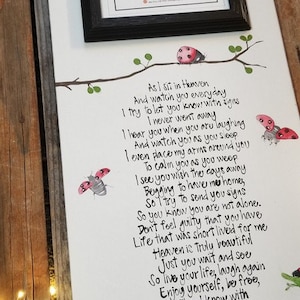 As I sit in Heaven
And watch you everyday
I try to let you know with signs
I never went away
I hear you when you are laughing
And watch you as you sleep
I even place my arms around you
To calm you as you weep
I see you wish the days away
Begging to have me home,
So I try to send you signs
So you know you are not alone.
Don't feel guilty that you have
Life that was short lived for me
Heaven is truly beautiful
Just you wait and see
So live your life, laugh again
Enjoy yourself, be free,
know with